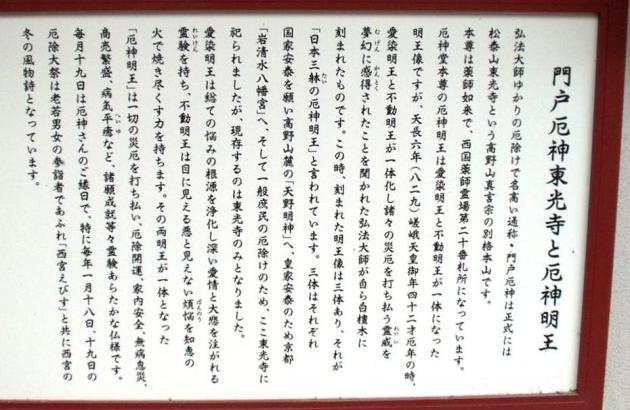 門戸厄神東光寺と厄神明王
弘法大師ゆかりの厄除けで名高い通称・門戸厄神は正式には
松泰山東光寺という高野山真言宗の別格本山です。
本尊は薬師如来で、西国薬師霊場第二十番札所になっています。
厄神堂本尊の厄神明王は愛染明王と不動明王が一体になった
明王像ですが、天長六年(八二九)嵯峨天皇御年四十二才厄年の時、
愛染明王と不動明王が一体化し諸々の災厄を打ち払う霊威を
夢幻に感得されたことを聞かれた弘法大師が自ら白檀木に
刻まれたものです。この時、刻まれた明王像は三体あり、それが
「日本三躰の厄神明王」と言われています。三体はそれぞれ
国家安泰を願い高野山麓の「天野明神」へ、皇家安泰のため京都
「岩清水八幡宮」へ、そして一般庶民の厄除けのため、ここ東光寺に
祀られましたが、現存するのは東光寺のみとなりました。
愛染明王は総ての悩みの根源を浄化し深い愛情と大悲を注がれる
霊験を持ち、不動明王は目に見える悪と見えない煩悩を知恵の
火で焼き尽くす力を持ちます。その両明王が一体となった
「厄神明王」は一切の災厄を打ち払い、厄除開運、家内安全、無病息災、
商売繁盛、病気平癒など、諸願成就等々霊験あらたかな仏様です。
毎月十九日は厄神さんのご縁日で、特に毎年一月十八日、十九日の
厄除大祭は老若男女の参詣者であふれ「西宮えびす」と共に西宮の
冬の風物詩となっています。